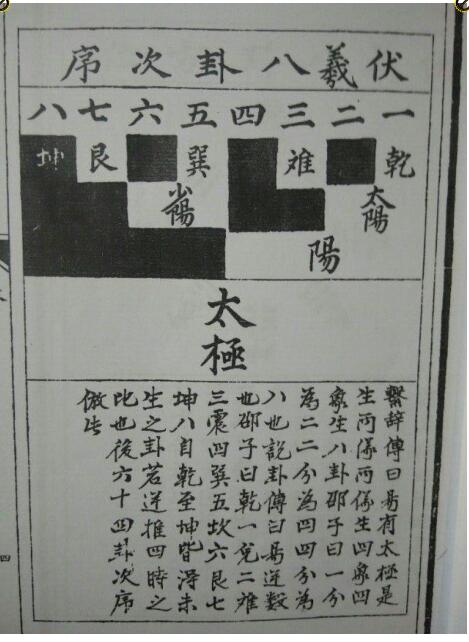 伏羲八卦次序
一二三四五六七八
乾離巽艮坤
太陽 少陽
陽
太極
繫辭傳曰易有太極是
生兩儀兩儀生四象四
象生八卦邵子曰一分
為二二分為四四分為
八也說卦傳曰易逆數
也邵子曰乾一兌二離
三震四巽五坎六艮七
坤八自乾至坤皆得未
生之卦若逆推四時之
比也後六十四卦次序
倣此
四